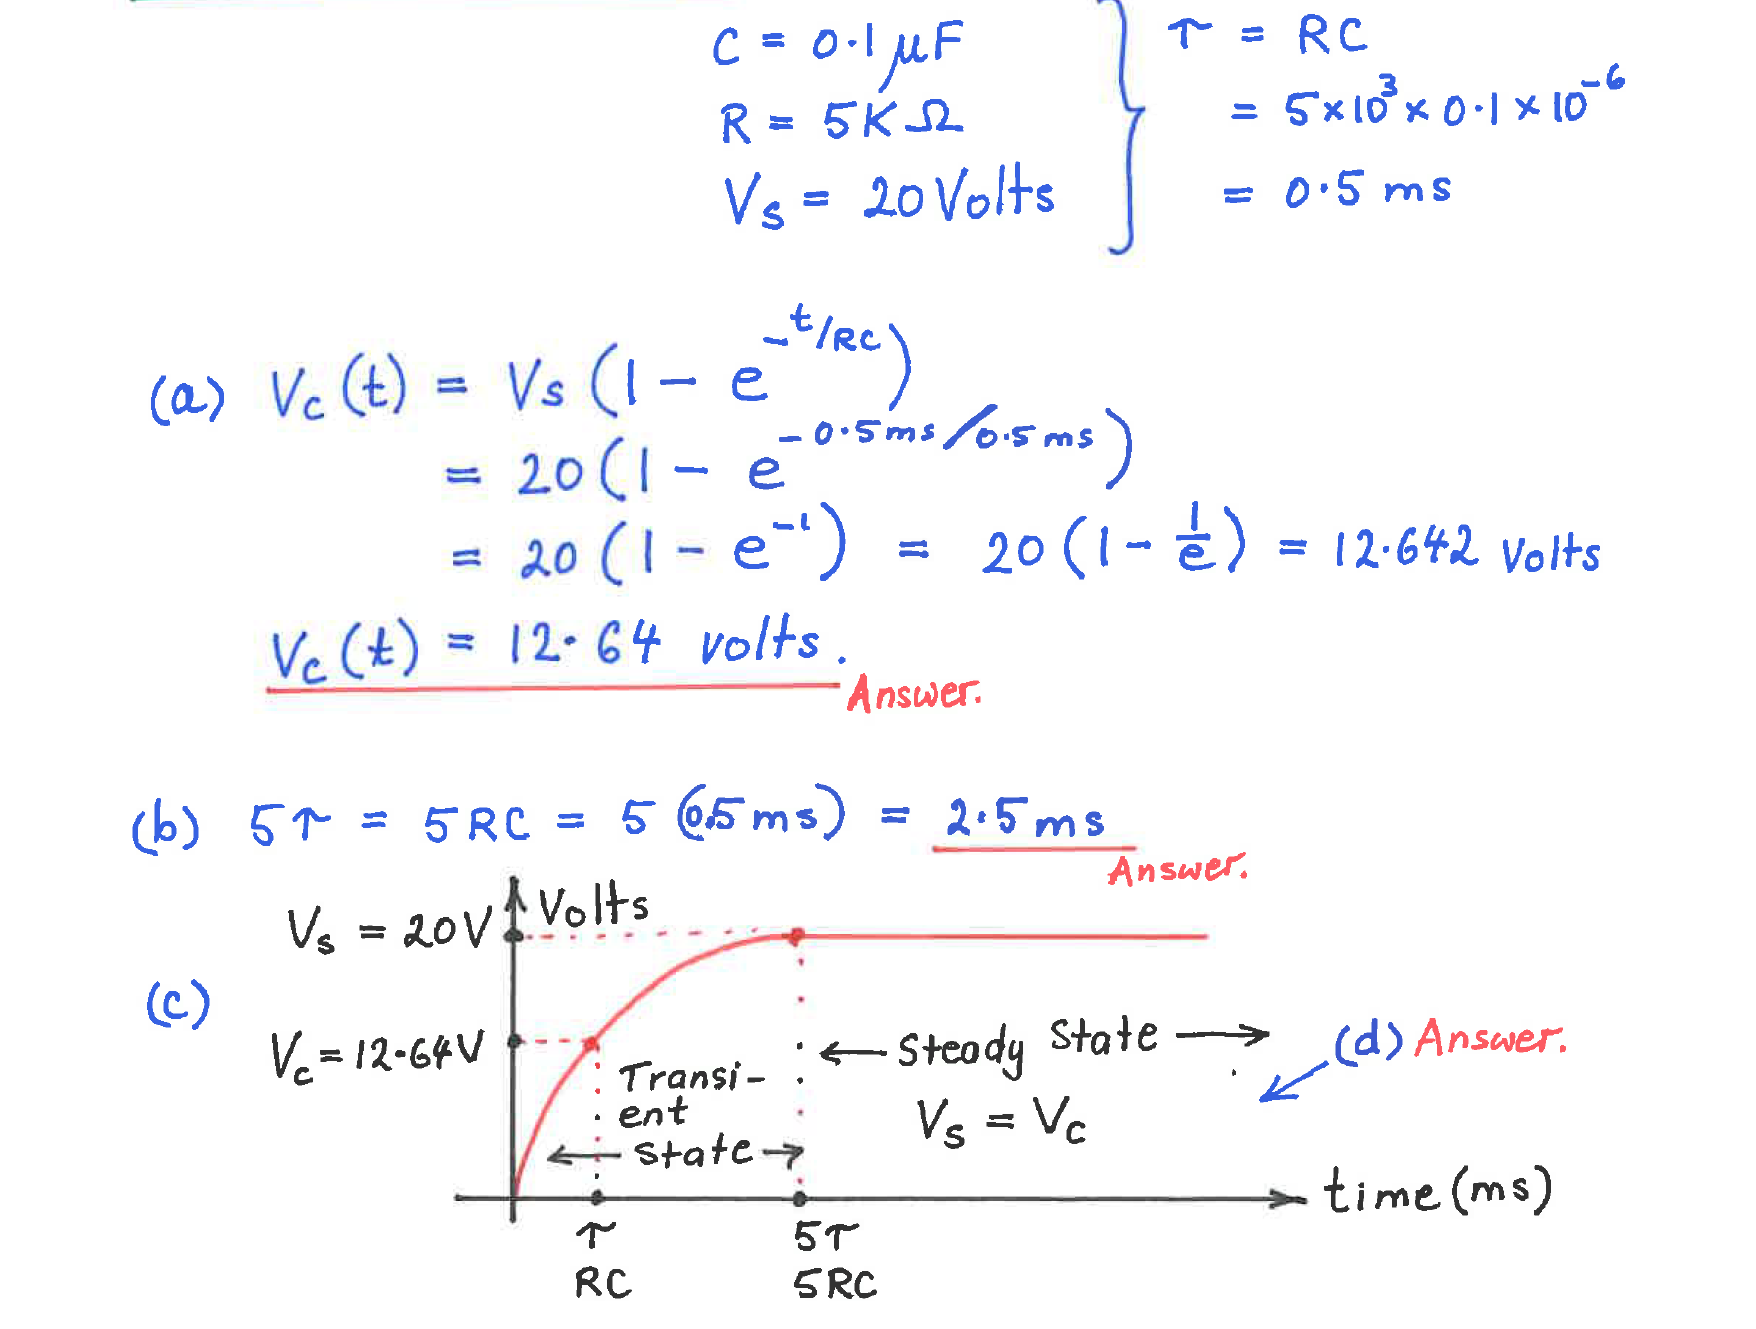 C = 0.1 μF
R = 5K Ω
Vs = 20 Volts
τ = RC
= 5×10³ × 0.1 × 10⁻⁶
= 0.5 ms
(a) Vc (t) = Vs (1 - e^-t/RC)
= 20 (1 - e^-0.5ms/0.5ms)
= 20 (1 - e⁻¹) = 20 (1 - 1/e) = 12.642 Volts
Vc (t) = 12.64 volts.
Answer.
(b) 5τ = 5RC = 5 (0.5ms) = 2.5ms
Answer.
Vs = 20V
Volts
(c)
Vc = 12.64V
Transi-
ent
state
Steady State
Vs = Vc
(d) Answer.
time (ms)
τ
5τ
RC
5RC